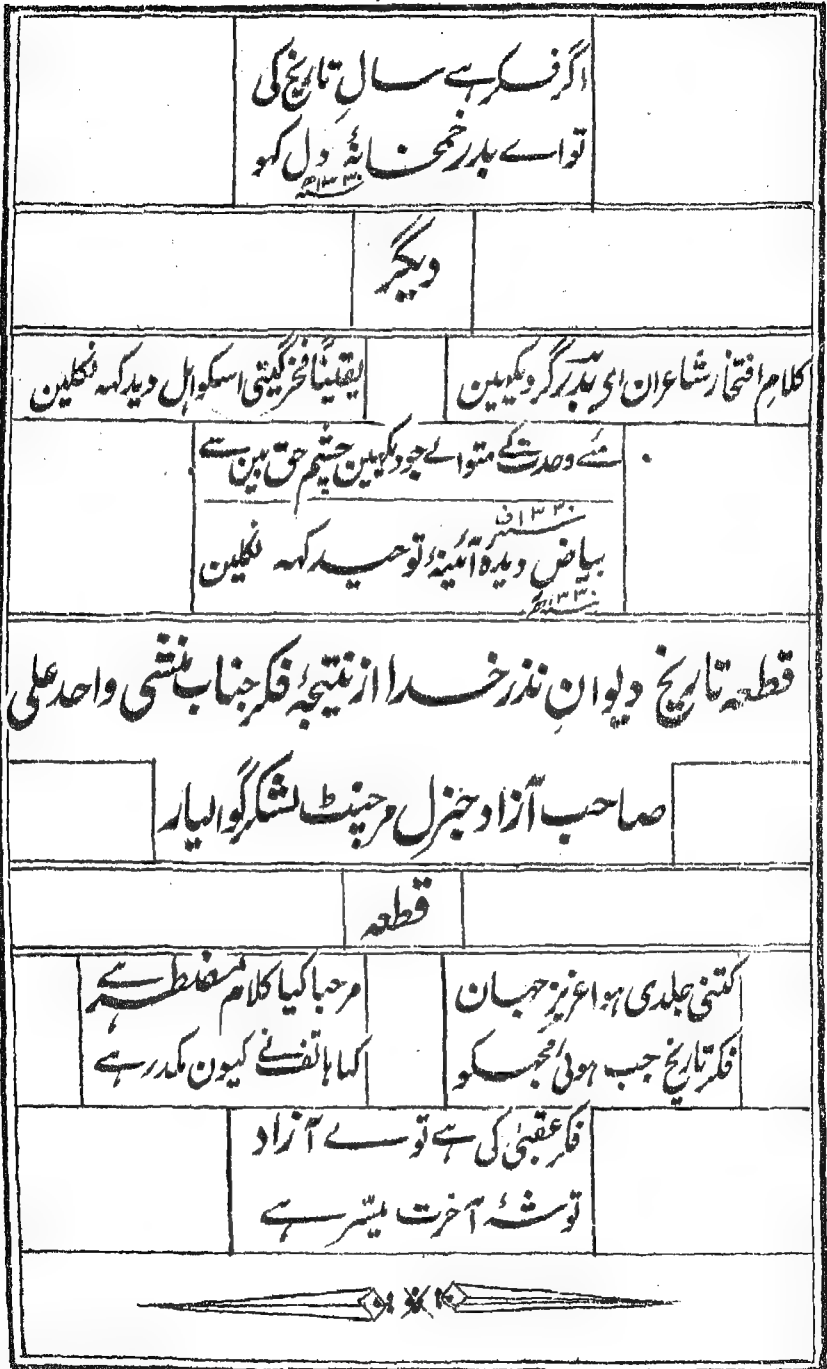 اگر فکر ہے سالِ تاریخ کی
تو اے بدر خمخانۂ دل کہو
۱۳۳۰ھ
دیگر
کلامِ افتخار شاعران ای بدرؔ گر دیکھین
یقیناً فخر گیتی اسکو اہل دید کہہ نکلین
مئے وحدت کے متوالے جو دیکھین چشم حق بین سے
۱۳۳۰ف
بیاض دیدہ آئینۂ توحید کہہ نکلین
۱۳۳۰ھ
قطعہ تاریخ دیوانِ نذر خدا از نتیجۂ فکر جناب منشی واحد علی
صاحب آزاد جنرل مرچنٹ لشکر گوالیار
قطعہ
کتنی جلدی ہوا عزیز جہان
مرحبا کیا کلام مضطر ہے
فکر تاریخ جب ہوئی مجھکو
کہا ہاتف نے کیون مکدر ہے
فکر عقبیٰ کی ہے تو سے آزاد
توشۂ آخرت میسّر ہے